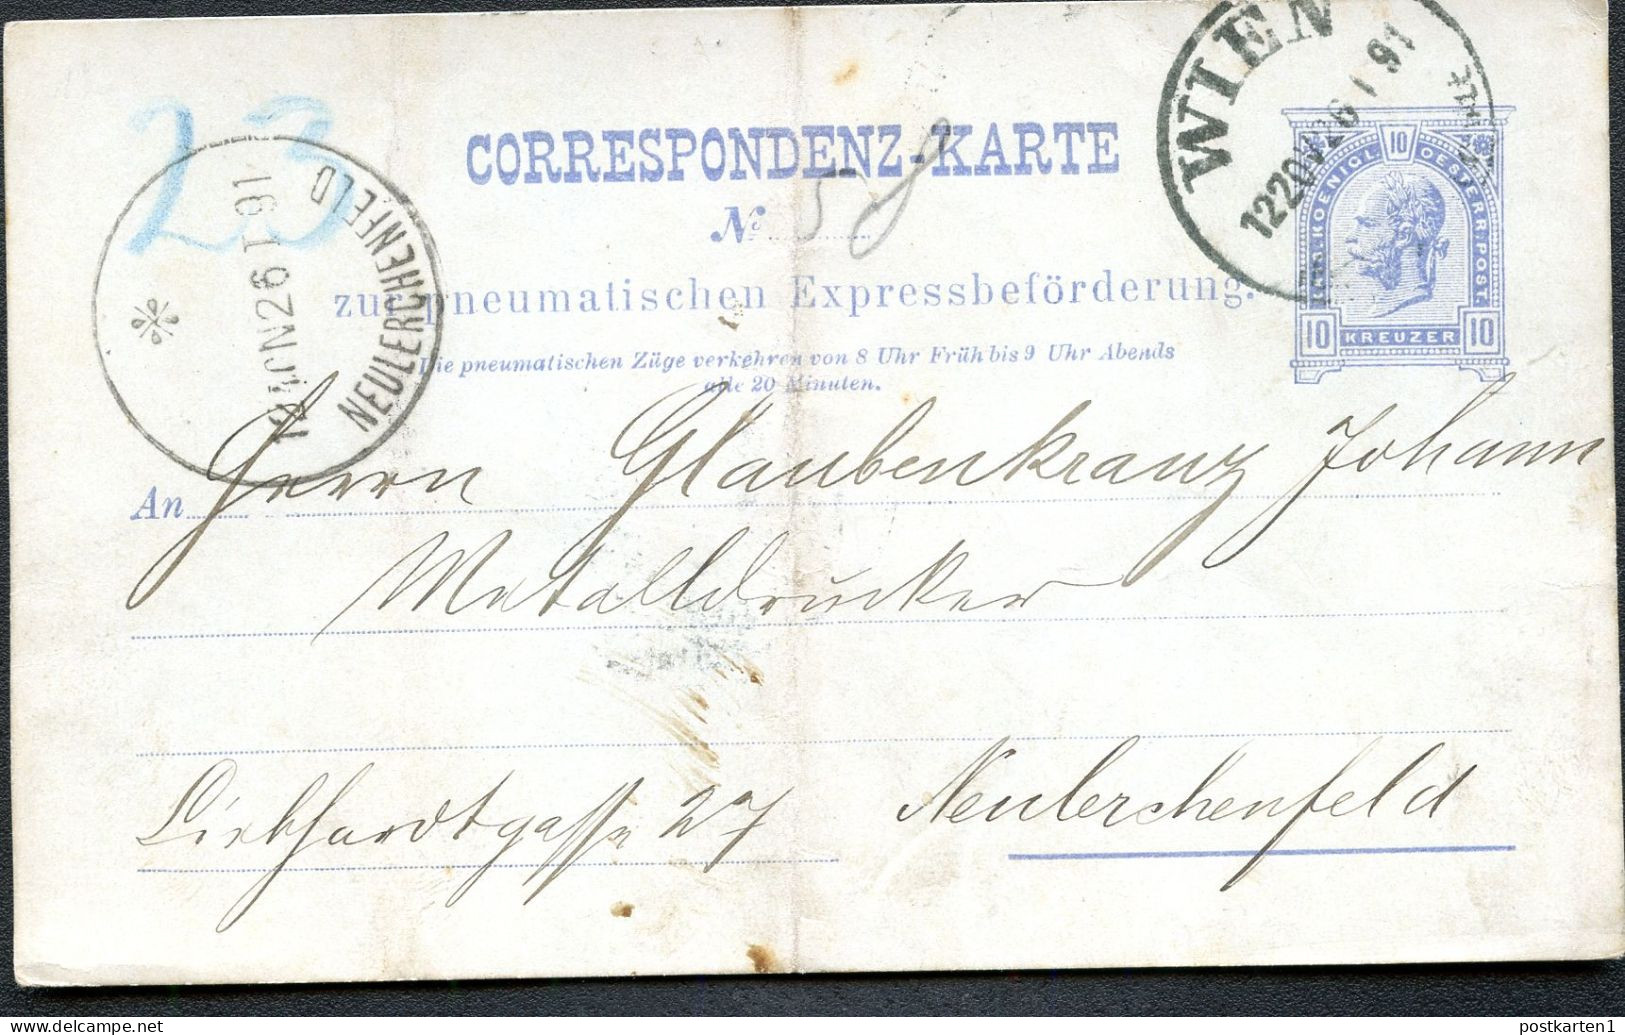 WIEN
1220N 26 1 91
23
CORRESPONDENZ-KARTE
No 58
KAIS. KOENIGL. OESTERR. POST.
10
10 KREUZER 10
NEULERCHENFELD
1240N 26 1 91
zur pneumatischen Expressbeförderung.
Die pneumatischen Züge verkehren von 8 Uhr Früh bis 9 Uhr Abends
alle 20 Minuten.
An Herrn Glaubenkranz Johann
Metalldrucker
Liebhardtgasse 27 Neulerchenfeld
postkarten1